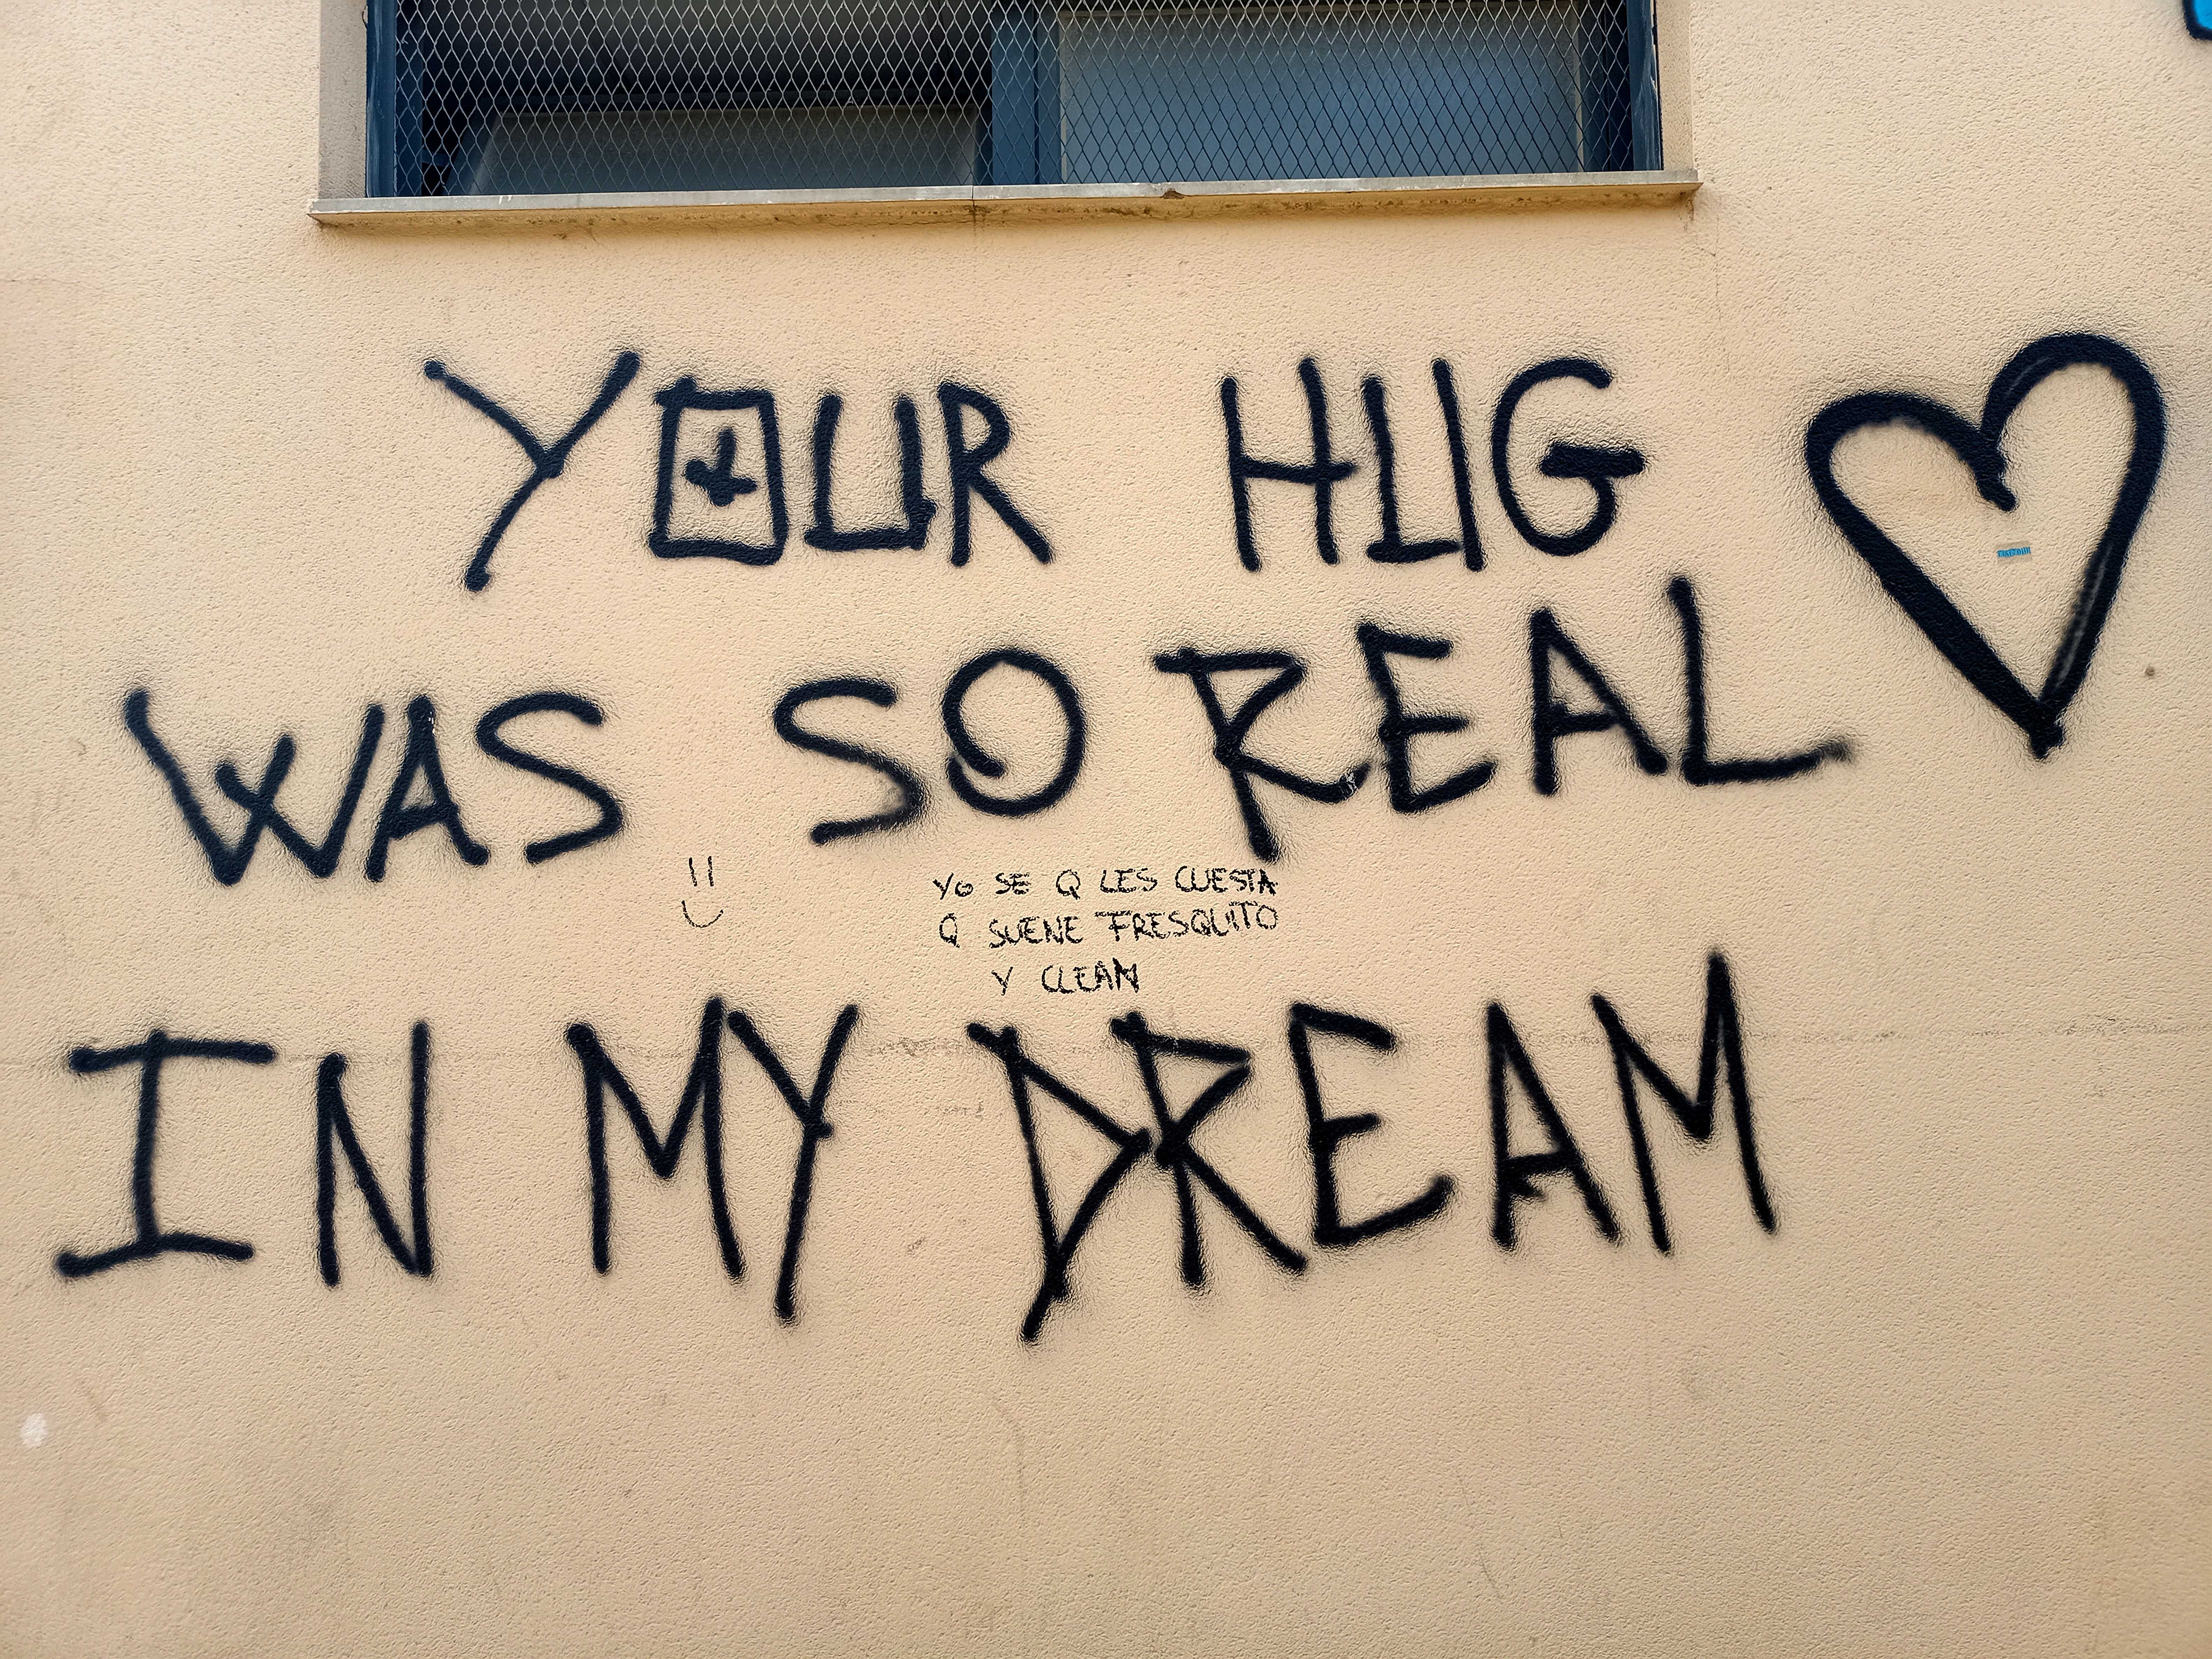 YOUR HUG
WAS SO REAL
YO SE Q LES CUESTA
Q SUENE FRESQUITO
Y CLEAN
IN MY DREAM